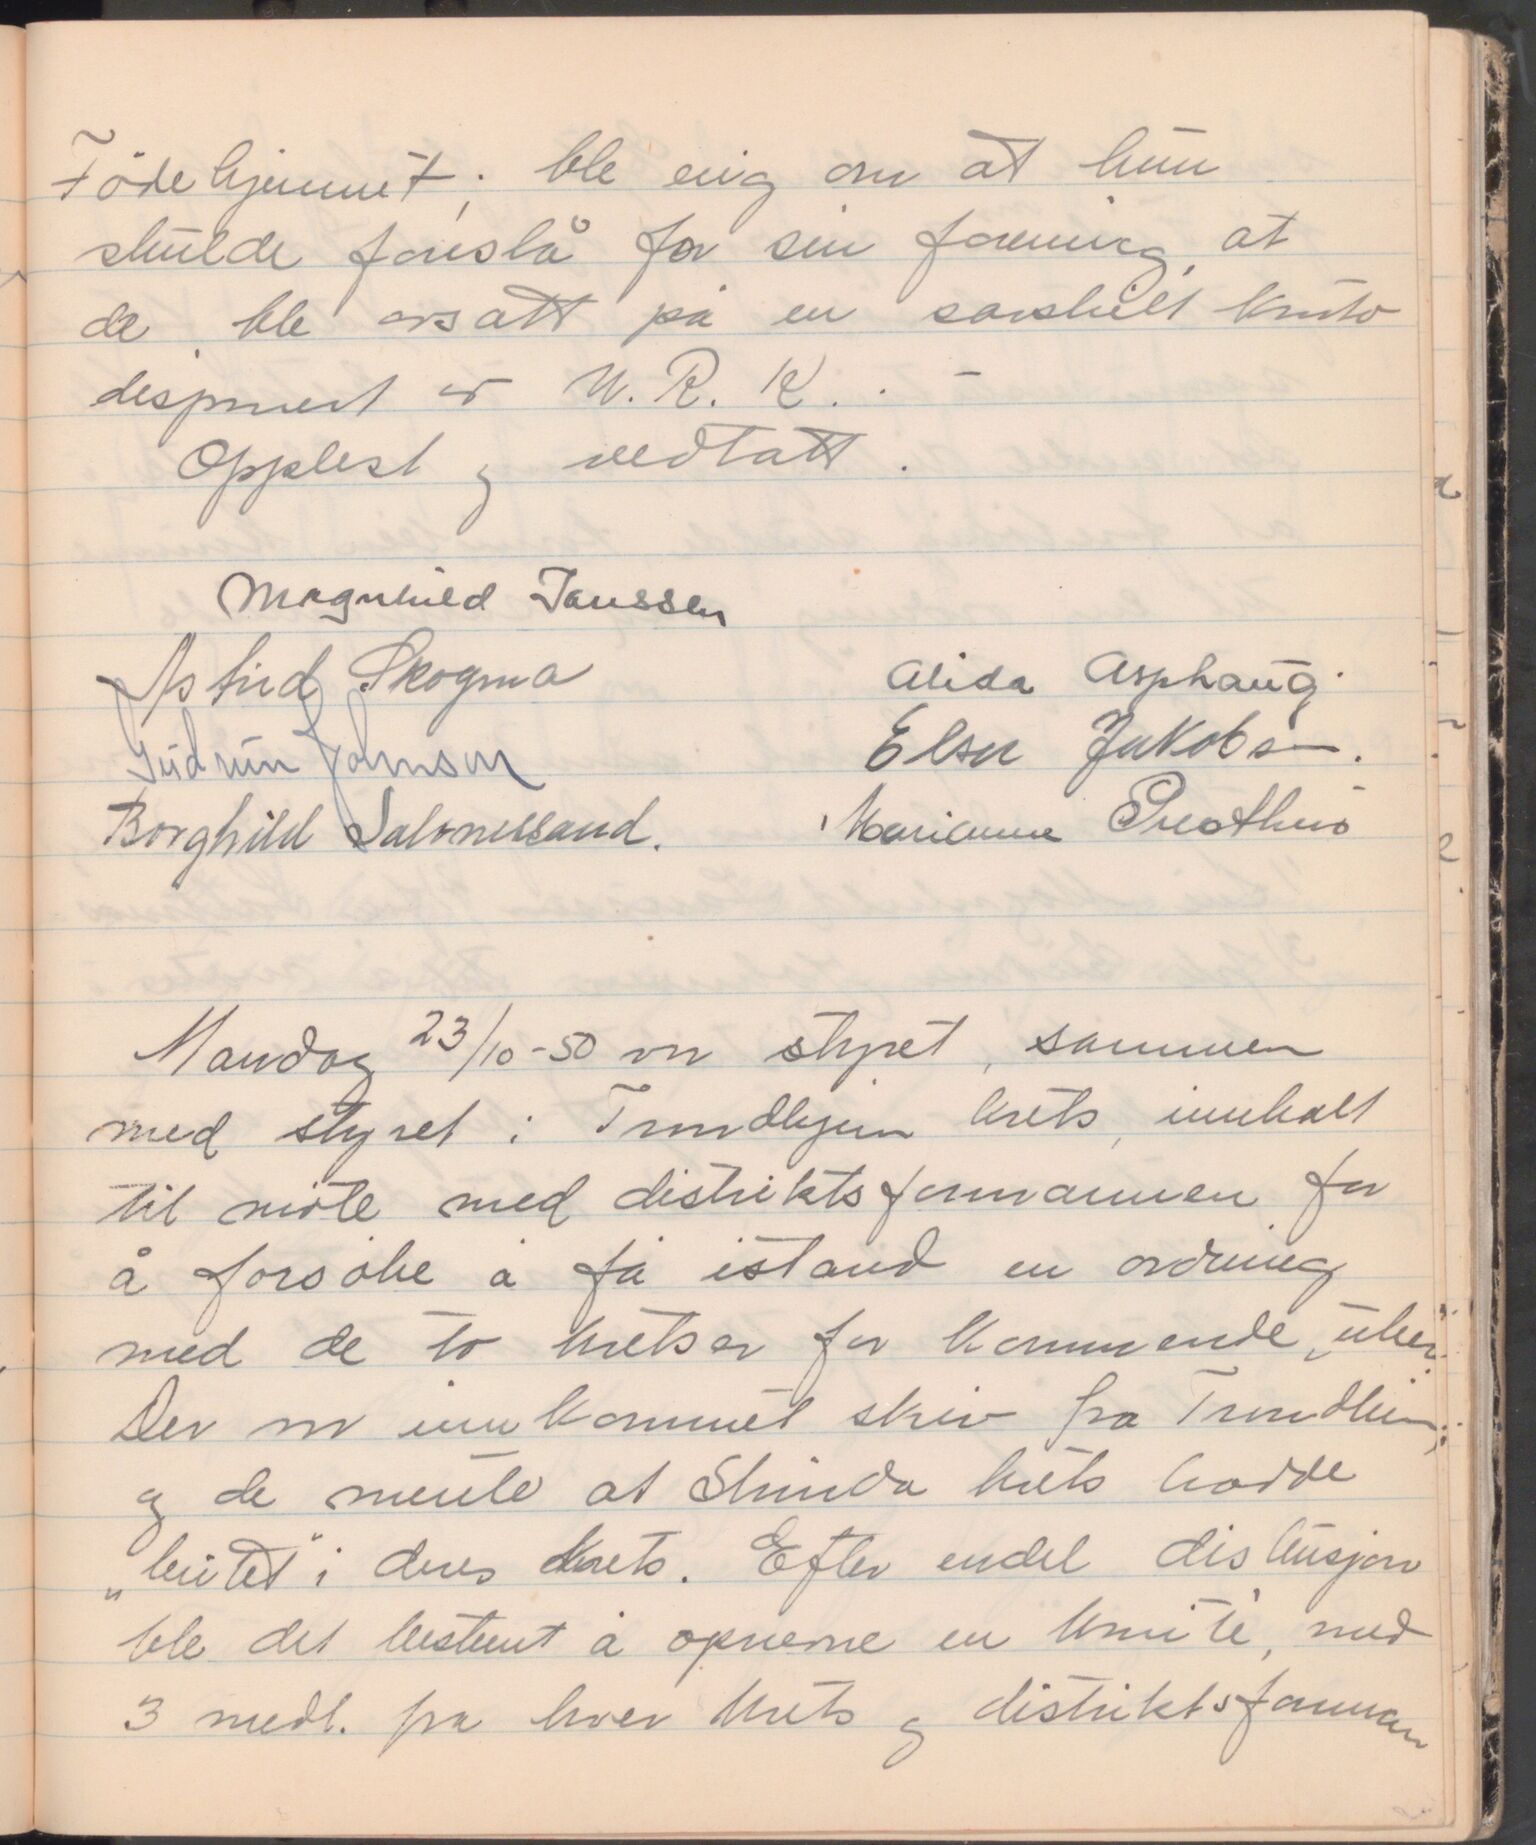 Födehjemmet; ble enig om at hun
skulde foreslå for sin forening, at
de ble avsatt på en særskilt konto
disponert av N. R. K. . -
Opplest og vedtatt.
Magnhild Janssen
Astrid Skogmo Alida Asphaug.
Gudrun Johnson Elsa Jakobsen.
Borghild Salomelsand. Marianne
Mandag 23/10-50 var styret, sammen
med styret i Trondhjem krets, innkalt
til möte med distriktsformannen for
å forsöke å få istand en ordning
med de to kretser for kommende
Der var innkommet skriv fra Trondheim,
og de mente at Strinda krets hadde
"beitet" i deres krets. Efter endel diskusjon
ble det bestemt å opnevne en komite, med
3 medl. fra hver krets og distriktsforman